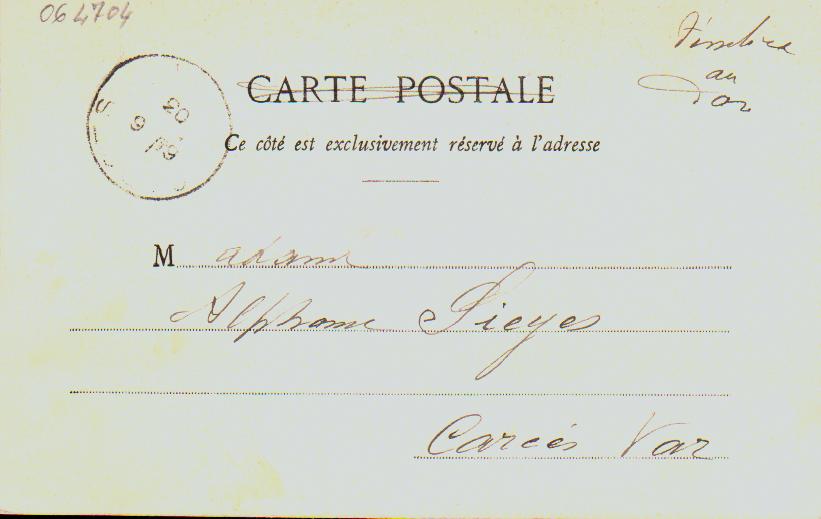 064704
Timbre
au
Dos
CARTE POSTALE
Ce côté est exclusivement réservé à l'adresse
Madame
Alphonse Sieyes
Carcès Var